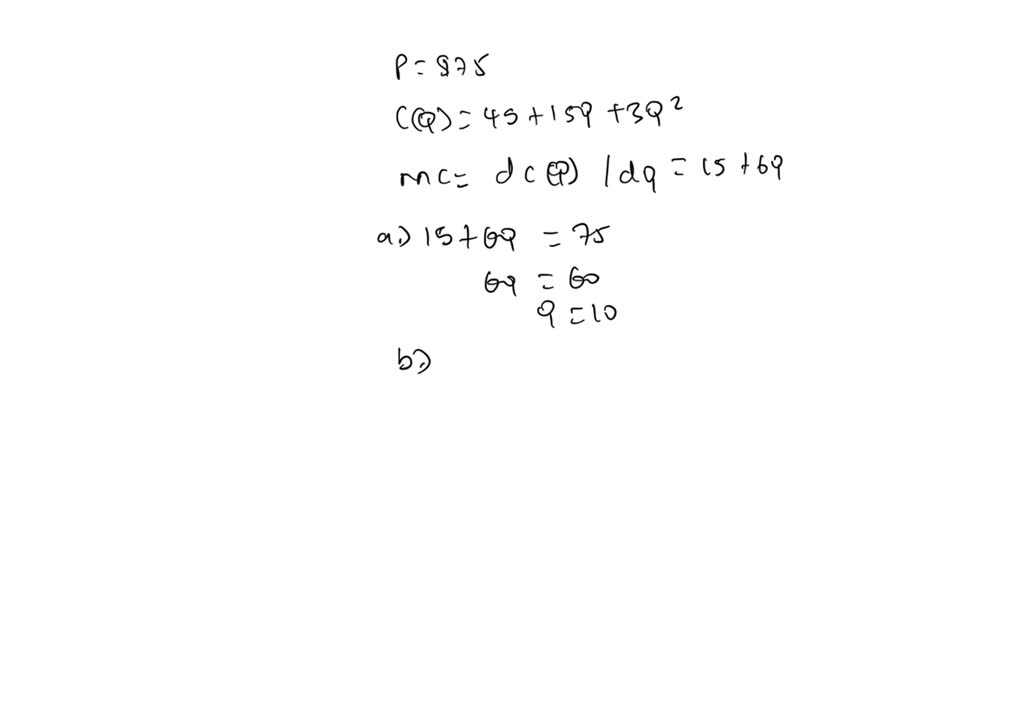 P = $75
C(Q) = 45 + 15q + 3Q²
mc = dc(Q) / dq = 15 + 6q
a.) 15 + 6Q = 75
6q = 60
q = 10
b.)